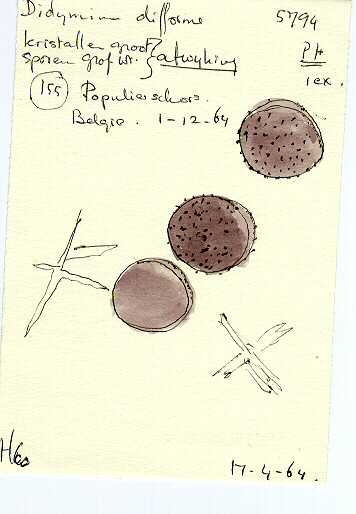 Didymium difforme 5794
kristallen groot } PH
sporen grof wr. } afwyking 1 ex.
(155) Populierschors.
Belgie. 1-12-64
17-4-64.